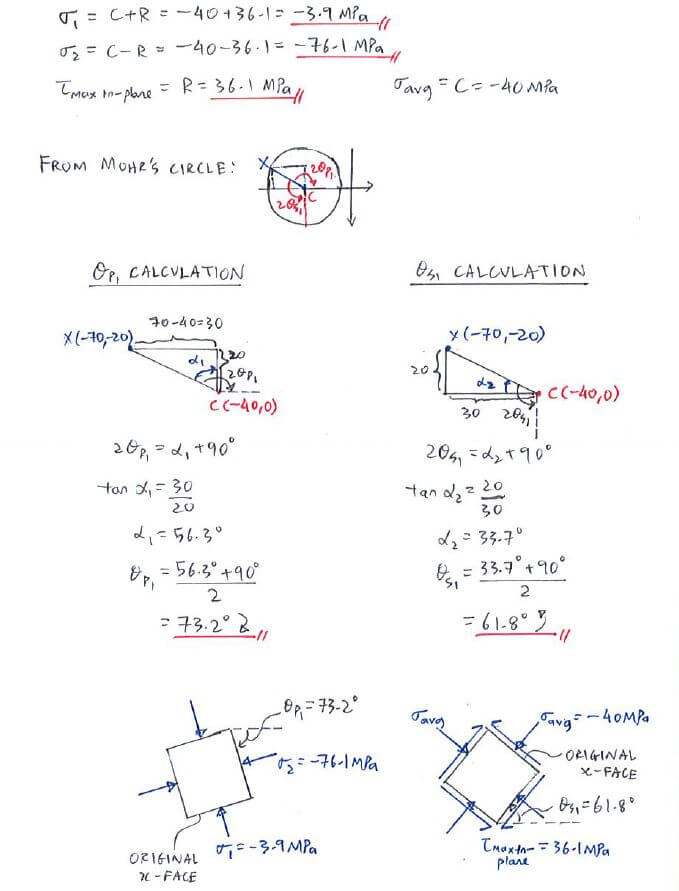 σ₁ = C+R = -40+36.1 = -3.9 MPa
σ₂ = C-R = -40-36.1 = -76.1 MPa
τmax in-plane = R = 36.1 MPa
σavg = C = -40 MPa
FROM MOHR'S CIRCLE:
X
2θP₁
2θS₁
C
θP₁ CALCULATION
70-40=30
X(-70,-20)
α₁
20
2θP₁
C(-40,0)
2θP₁ = α₁+90°
tan α₁ = 30/20
α₁ = 56.3°
θP₁ = 56.3°+90°/2
= 73.2°
θS₁ CALCULATION
X(-70,-20)
20
α₂
C(-40,0)
30
2θS₁
2θS₁ = α₂+90°
tan α₂ = 20/30
α₂ = 33.7°
θS₁ = 33.7°+90°/2
= 61.8°
θP₁ = 73.2°
σ₂ = -76.1 MPa
σ₁ = -3.9 MPa
ORIGINAL
x-FACE
σavg
σavg = -40MPa
ORIGINAL
x-FACE
θS₁ = 61.8°
τmax in-plane = 36.1 MPa